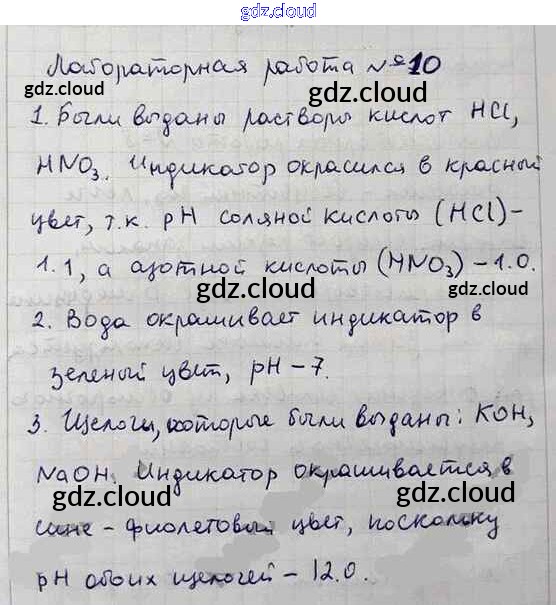 gdz.cloud
Лабораторная работа № 10
gdz.cloud gdz.cloud
1. Были выданы растворы кислот HCl,
gdz.cloud gdz.cloud
HNO3. Индикатор окрасился в красный
цвет, т.к. pH соляной кислоты (HCl) -
gdz.cloud gdz.cloud
1.1, а азотной кислоты (HNO3) - 1.0.
gdz.cloud gdz.cloud
2. Вода окрашивает индикатор в
зеленый цвет, pH - 7.
gdz.cloud gdz.cloud
3. Щелочи, которые были выданы: KOH,
gdz.cloud gdz.cloud
NaOH. Индикатор окрашивается в
gdz.cloud gdz.cloud
сине-фиолетовый цвет, поскольку
pH обоих щелочей - 12.0.
gdz.cloud gdz.cloud